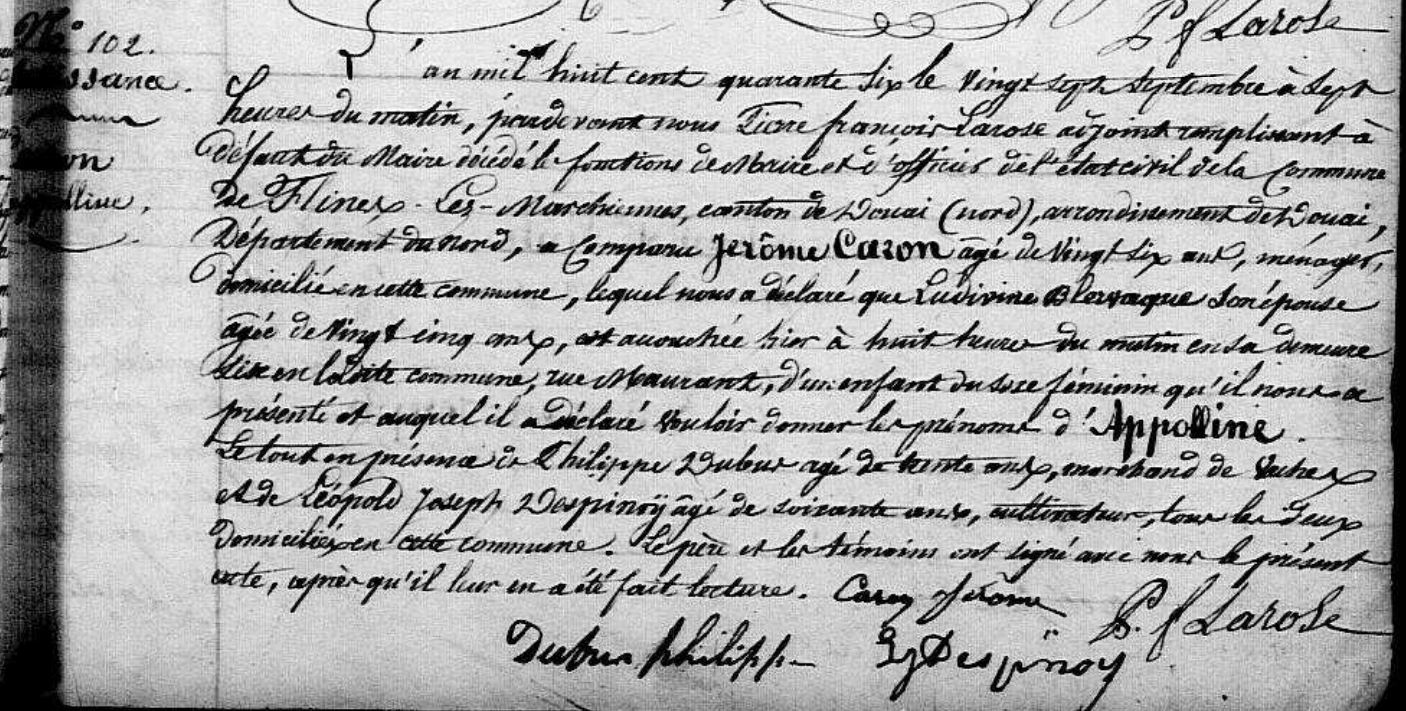 P f Larose
N° 102.
L'an mil huit cent quarante six le vingt sept Septembre à Sept
heures du matin, pardevant nous Pierre françois Larose adjoint remplissant à
défaut du Maire décédé le fonctions de Maire et d'officier de l'état civil de la Commune
de Flines-Les-Marchiennes, canton de Douai (nord), arrondissement de Douai,
Département du nord, a Comparu Jerôme Caron âgé de Vingt Six ans, ménager,
domicilié en cette commune, lequel nous a déclaré que Ludivine Blervaque son épouse
âgée de Vingt cinq ans, est accouchée hier à huit heures du matin en sa demeure
Sise en ladite commune, rue Maurant, d'un enfant du sexe féminin qu'il nous a
présenté et auquel il a déclaré vouloir donner les prénoms d'Appolline.
Le tout en présence de Philippe Dubus agé de trente ans, marchand de Vaches
et de Léopold Joseph Despinoÿ âgé de soixante ans, cultivateur, tous les deux
domiciliés en cette commune. Le père et les témoins ont signé avec nous le présent
acte, après qu'il leur en a été fait lecture. Caron Jérôme
P. f Larose
Dubus philippe Lj Despinoÿ